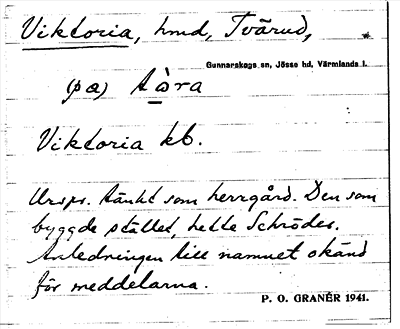 Viktoria, hmd, Tvärud,
Gunnarskogs sn, Jösse hd, Värmlands l.
(på) tòra
Viktoria kb.
Urspr. tänkt som herrgård. Den som
byggde stället, hette Schröder.
Anledningen till namnet okänd
för meddelarna.
P. O. GRANÉR 1941.